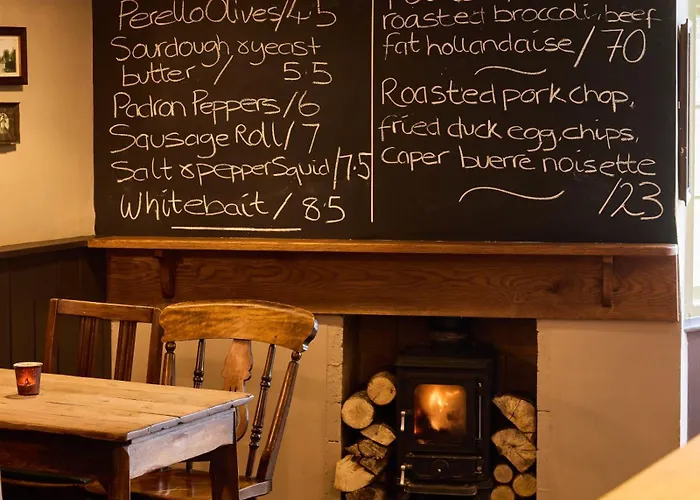 Perello Olives/4.5
Sourdough & yeast
butter / 5.5
Padron Peppers/6
Sausage Roll/7
Salt & pepper Squid/7.5
Whitebait/8.5
roasted broccoli, beef
fat hollandaise/70
Roasted pork chop,
fried duck egg, chips,
caper buerre noisette
/23